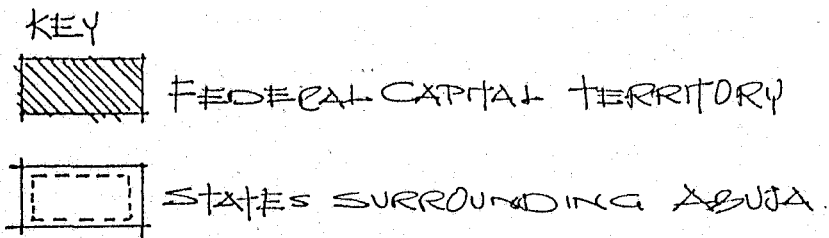 KEY
FEDERAL CAPITAL TERRITORY
STATES SURROUNDING ABUJA.